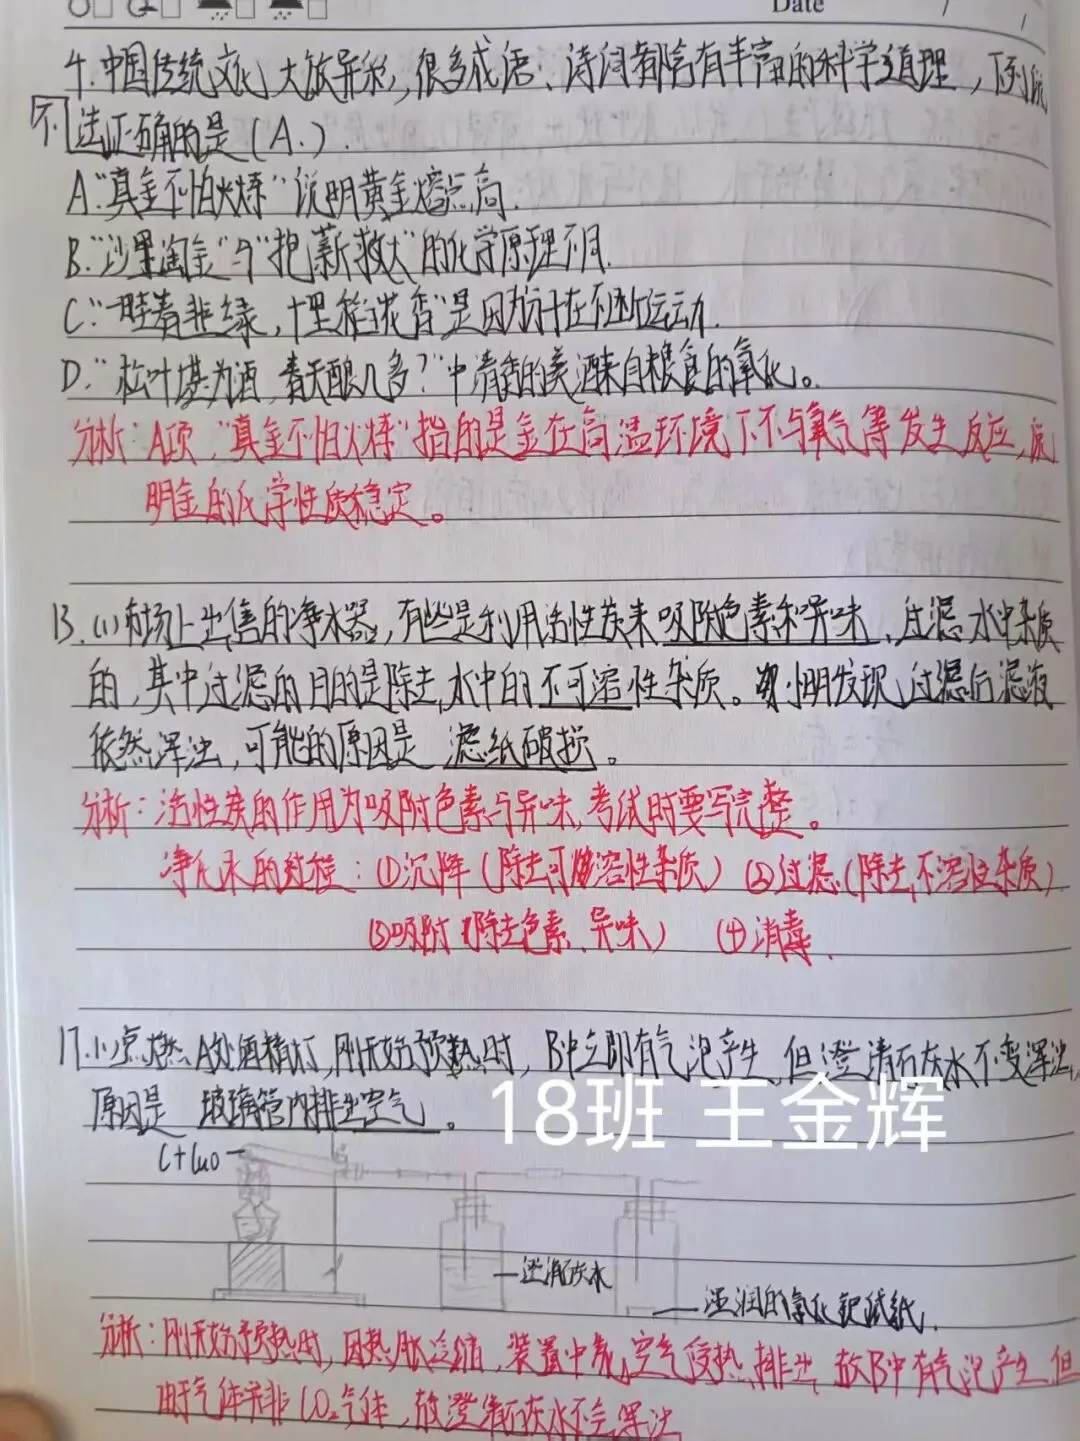 Date
4.中国传统文化大放异彩,很多成语、诗词都蕴含有丰富的科学道理,下列说
不 法正确的是(A.).
A."真金不怕火炼"说明黄金熔点高.
B."沙里淘金"与"抱薪救火"的化学原理不同.
C."一畦春韭绿,十里稻花香"是因为分子在不断运动.
D."松叶堪为酒,春天酿几多?"中清香的美酒来自粮食的氧化。
分析:A项,"真金不怕火炼"指的是金在高温环境下不与氧气等发生反应,说
明金的化学性质稳定。
13.(1)市场上出售的净水器,有些是利用活性炭来吸附色素和异味、过滤水中杂质
的,其中过滤的目的是除去水中的不可溶性杂质。小明发现过滤后滤液
依然浑浊,可能的原因是 滤纸破损。
分析:活性炭的作用为吸附色素与异味,考试时要写完整。
净化水的过程:①沉降(除去可溶性杂质) ②过滤(除去不溶性杂质)
③吸附(除去色素、异味) ④消毒.
17.(1)点燃A处酒精灯,刚开始预热时,B中立即有气泡产生,但澄清石灰水不变浑浊,
原因是 玻璃管内排出空气。
18班 王金辉
C+CuO
澄清石灰水
湿润的氯化钯试纸.
分析:刚开始预热时,因热胀冷缩,装置中空气受热排出,故B中有气泡产生,但
由于气体并非CO₂气体,故澄清石灰水不会浑浊